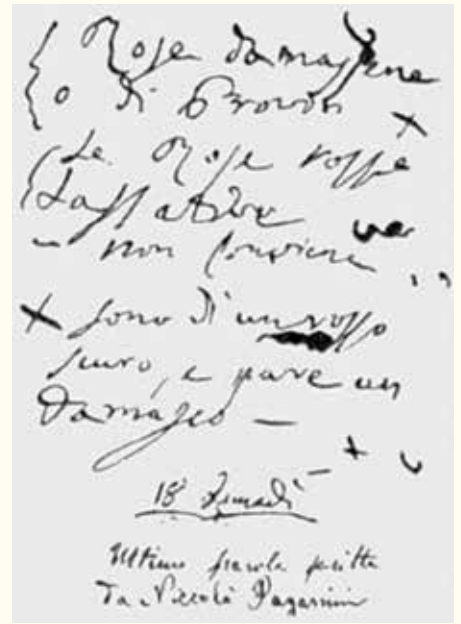 Rose damascene
o di Provins +
Le Rose rosse
Lassative
– non conviene
+ sono d'un rosso
scuro, e pare un
damasco –
+
18 Lunedì –
Ultima parola scritta
da Niccolò Paganini